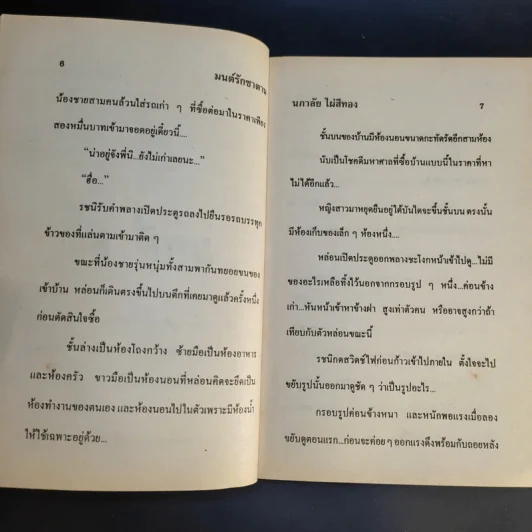 6
มนต์รักซาตาน
น้องชายสามคนล้วนใส่รถเก่า ๆ ที่ซื้อต่อมาในราคาเพียง
สองหมื่นบาทเข้ามาจอดอยู่เดี๋ยวนี้....
“น่าอยู่จังพี่นิ...ยังไม่เก่าเลยนะ...”
“ฮื่อ...”
รชนิรับคำพลางเปิดประตูรถลงไปยืนรอรถบรรทุก
ข้าวของที่แล่นตามเข้ามาติด ๆ
ขณะที่น้องชายรุ่นหนุ่มทั้งสามพากันทยอยขนของ
เข้าบ้าน หล่อนก็เดินตรงขึ้นไปบนตึกที่เคยมาดูแล้วครั้งหนึ่ง
ก่อนตัดสินใจซื้อ
ชั้นล่างเป็นห้องโถงกว้าง ซ้ายมือเป็นห้องอาหาร
และห้องครัว ขวามือเป็นห้องนอนที่หล่อนคิดจะยึดเป็น
ห้องทำงานของตนเอง และห้องนอนไปในตัวเพราะมีห้องน้ำ
ให้ใช้เฉพาะอยู่ด้วย...
นภาลัย ไผ่สีทอง
7
ชั้นบนของบ้านมีห้องนอนขนาดกะทัดรัดอีกสามห้อง
นับเป็นโชคดีมหาศาลที่ซื้อบ้านแบบนี้ในราคาที่หา
ไม่ได้อีกแล้ว...
หญิงสาวมาหยุดยืนอยู่ใต้บันไดจะขึ้นชั้นบน ตรงนั้น
มีห้องเก็บของเล็ก ๆ ห้องหนึ่ง....
หล่อนเปิดประตูออกพลางชะโงกหน้าเข้าไปดู...ไม่มี
ของอะไรเหลือทิ้งไว้นอกจากกรอบรูป ๆ หนึ่ง...ค่อนข้าง
เก่า...หันหน้าเข้าหาข้างฝา สูงเท่าตัวคน หรืออาจสูงกว่าถ้า
เทียบกับตัวหล่อนขณะนี้
รชนิกดสวิตช์ไฟก่อนก้าวเข้าไปภายใน ตั้งใจจะไป
ขยับรูปนั้นออกมาดูชัด ๆ ว่าเป็นรูปอะไร...
กรอบรูปค่อนข้างหนา และหนักพอแรงเมื่อลอง
ขยับดูตอนแรก...ก่อนจะค่อย ๆ ออกแรงดึงพร้อมกับถอยหลัง